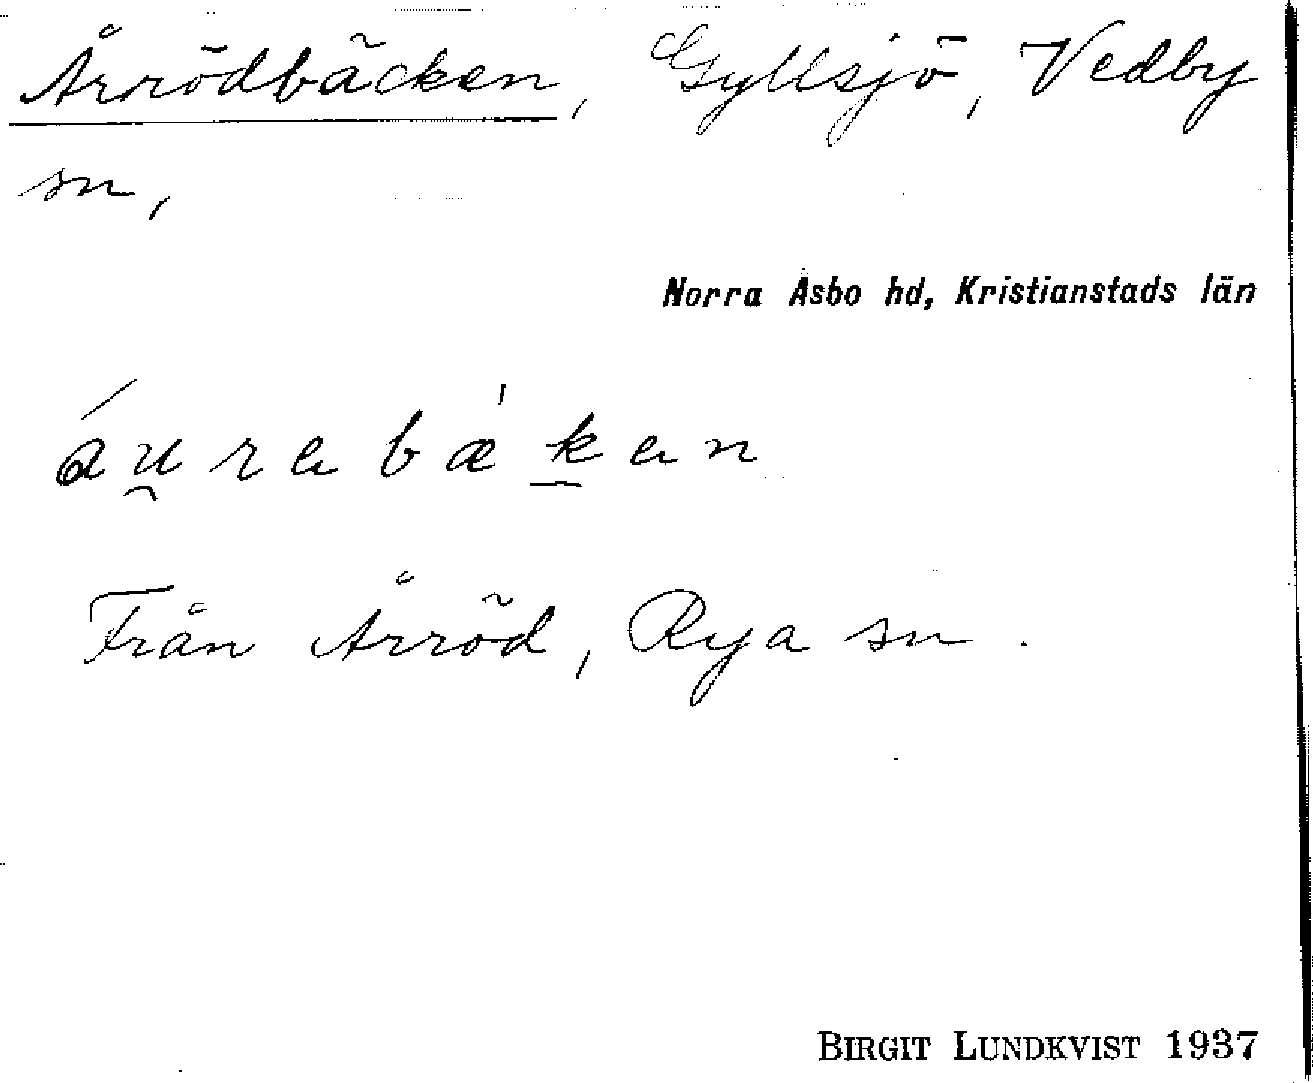 Årrödbäcken, Gyllsjö, Vedby
sn,
Norra Åsbo hd, Kristianstads län
áu̯rabǽkan
Från Årröd, Rya sn.
BIRGIT LUNDKVIST 1937